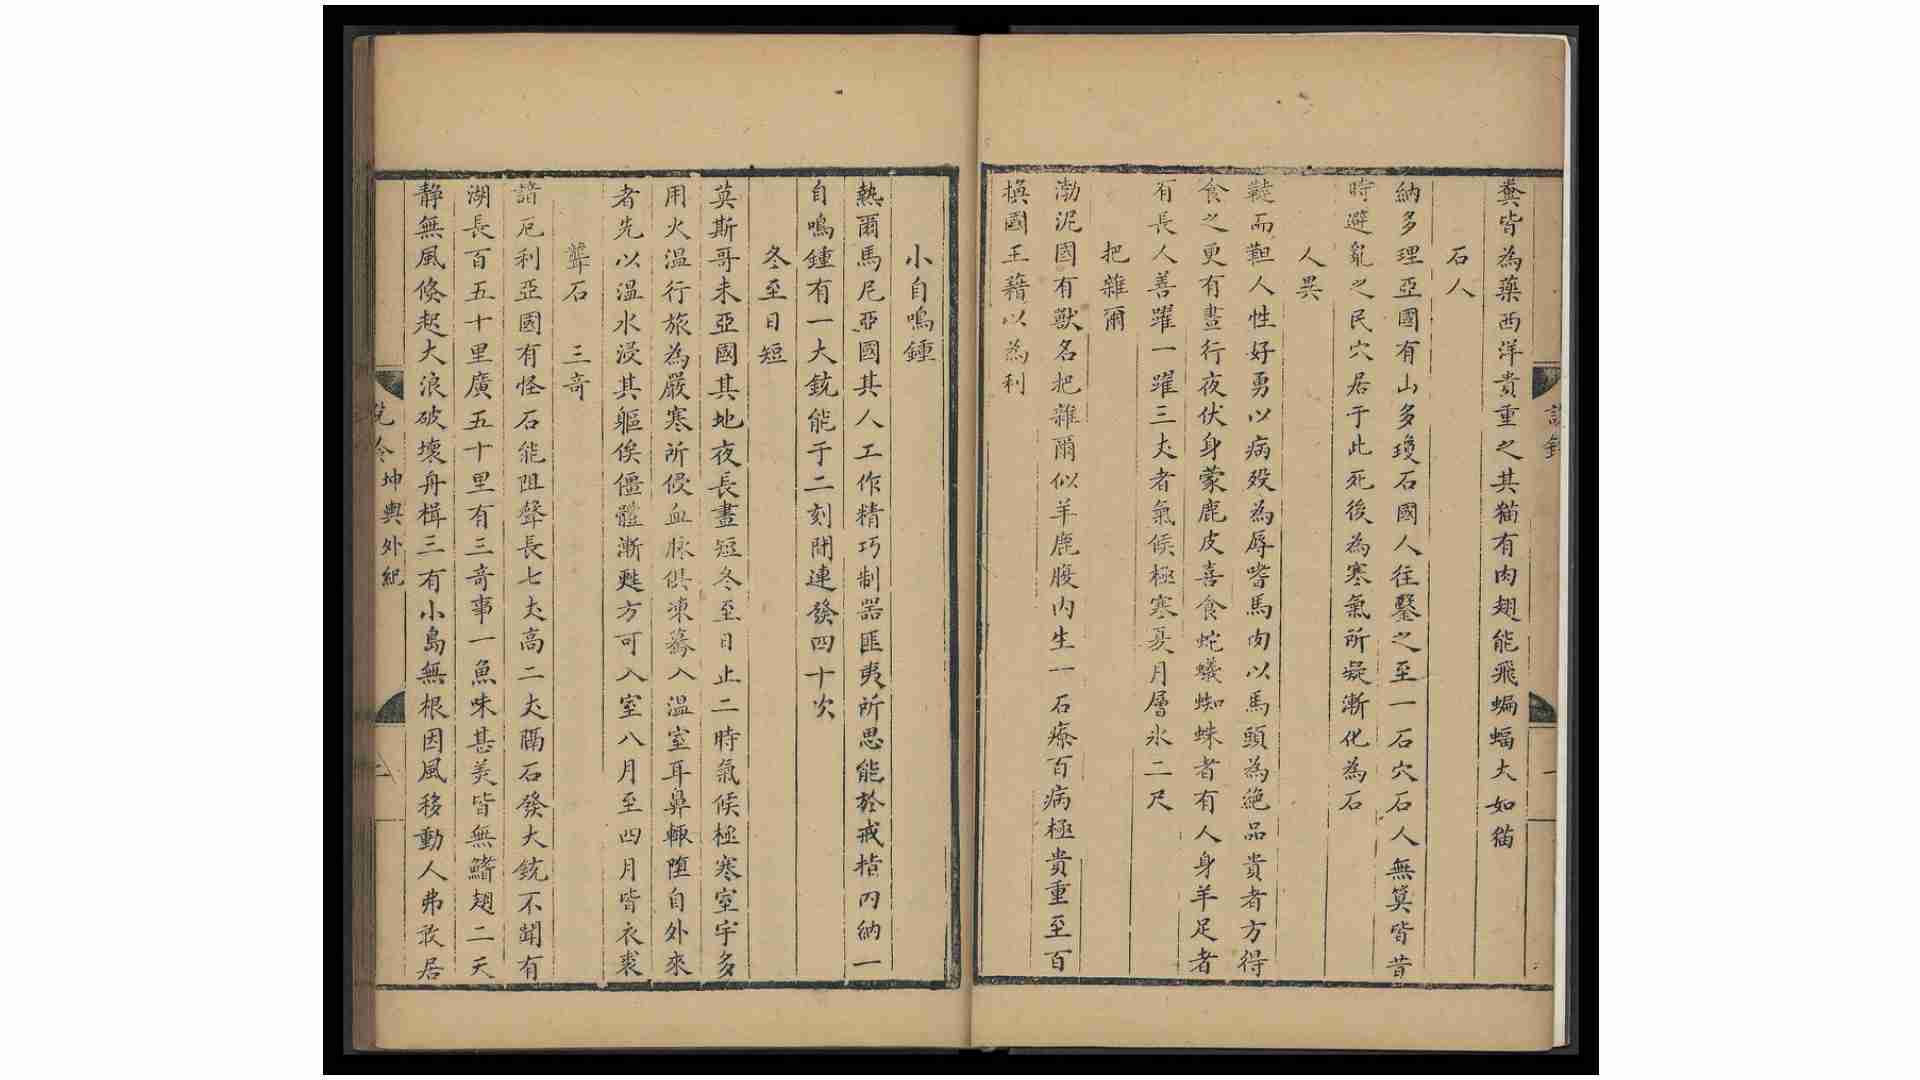 糞皆為藥西洋貴重之其猫有肉翅能飛蝙蝠大如猫
石人
納多理亞國有山多瓊石國人往鑿之至一石穴石人無筭皆昔
時避亂之民穴居于此死後為寒氣所凝漸化為石
人異
韃而靼人性好勇以病殁為辱嗜馬肉以馬頭為絶品貴者方得
食之更有晝行夜伏身蒙鹿皮喜食蛇蟻蜘蛛者有人身羊足者
有長人善躍一躍三𡗝者氣候極寒夏月層氷二尺
把雜爾
渤泥國有獸名把雜爾似羊鹿腹内生一石療百病極貴重至百
換國王藉以為利
小自鳴鍾
熱爾馬尼亞國其人工作精巧制器匪夷所思能於戒指内納一
自鳴鍾有一大銃能于二刻間連發四十次
冬至日短
莫斯哥未亞國其地夜長晝短冬至日止二時氣候極寒室宇多
用火温行旅為嚴寒所侵血脉俱凍驀入温室耳鼻輙墮自外來
者先以温水浸其軀俟僵體漸甦方可入室八月至四月皆衣裘
聾石　三竒
諳厄利亞國有怪石能阻聲長七𡗝高二𡗝隔石發大銃不聞有
湖長百五十里廣五十里有三竒事一魚味甚美皆無鰭翅二天
静無風倐起大浪破壞舟楫三有小島無根因風移動人弗敢居
説鈴 坤輿外紀